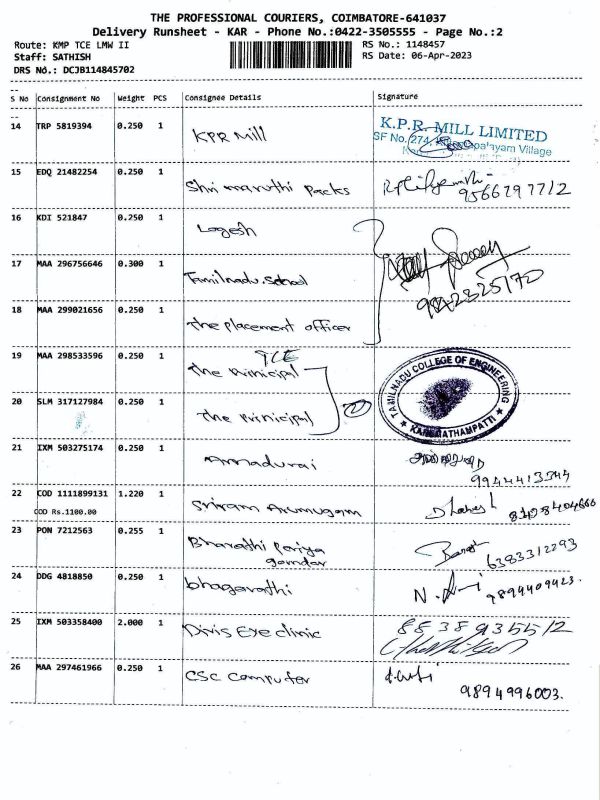 THE PROFESSIONAL COURIERS, COIMBATORE-641037
Delivery Runsheet - KAR - Phone No.:0422-3505555 - Page No.:2
Route: KMP TCE LMW II
RS No.: 1148457
Staff: SATHISH
RS Date: 06-Apr-2023
DRS No.: DCJB114845702
S No Consignment No Weight PCS Consignee Details Signature
14 TRP 5819394 0.250 1 KPR Mill
K.P.R. MILL LIMITED
SF No. 274, Village
15 EDQ 21482254 0.250 1 Shri maruthi packs 9566297712
16 KDI 521847 0.250 1 Logesh
17 MAA 296756646 0.300 1 Tamilnadu.School
9842325170
18 MAA 299021656 0.250 1 The placement officer
TCE
19 MAA 298533596 0.250 1 The Principal
TAMILNADU COLLEGE OF ENGINEERING
KARUMATHAMPATTI
20 SLM 317127984 0.250 1 The Principal
21 IXM 503275174 0.250 1 Annadurai
9944413544
22 COD 1111899131 1.220 1 Sriram Arumugam
COD Rs.1100.00
23 PON 7212563 0.255 1 Bharathi Periya
gounder
6383312293
24 DDG 4818850 0.250 1 bhagarathi 9894409423.
25 IXM 503358400 2.000 1 Divis Eye clinic 8838935512
26 MAA 297461966 0.250 1 CSC Computer
9894996003.